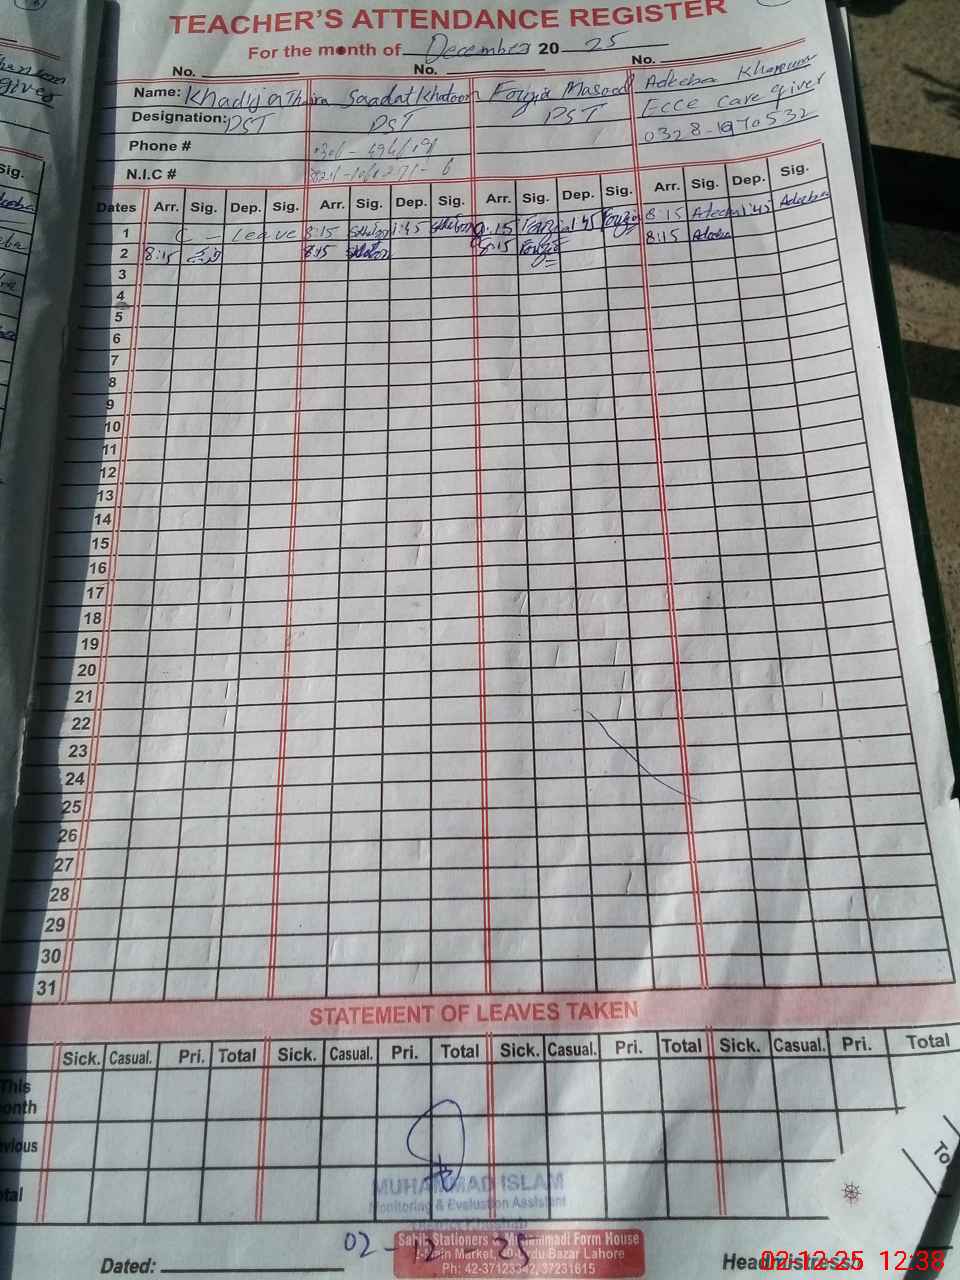 TEACHER'S ATTENDANCE REGISTER
For the month of December 20 25
No. No. No.
Name: Khadija Thaira Saadat Khatoon Fozia Masood Adeeba Khanum
Designation: PST PST PST ECCE Care giver
Phone # 0328-1970532
N.I.C #
Dates Arr. Sig. Dep. Sig. Arr. Sig. Dep. Sig. Arr. Sig. Dep. Sig. Arr. Sig. Dep. Sig.
1 C - Leave 8:15 1:45 8:15 Fozia 1:45 Fozia 8:15 Adeeba 1:45 Adeeba
2 8:15 8:15 8:15 Fozia 8:15 Adeeba
3
4
5
6
7
8
9
10
11
12
13
14
15
16
17
18
19
20
21
22
23
24
25
26
27
28
29
30
31
STATEMENT OF LEAVES TAKEN
Sick. Casual. Pri. Total Sick. Casual. Pri. Total Sick. Casual. Pri. Total Sick. Casual. Pri. Total
This
onth
vious
tal
To
MUHAMMAD ISLAM
Monitoring & Evaluation Assistant
District Khushab
02-12-25
Sahib Stationers & Muhammadi Form House
Main Market, 40-Urdu Bazar Lahore
Ph: 42-37123342, 37231615
Dated: Headmistress
02.12.25 12:38